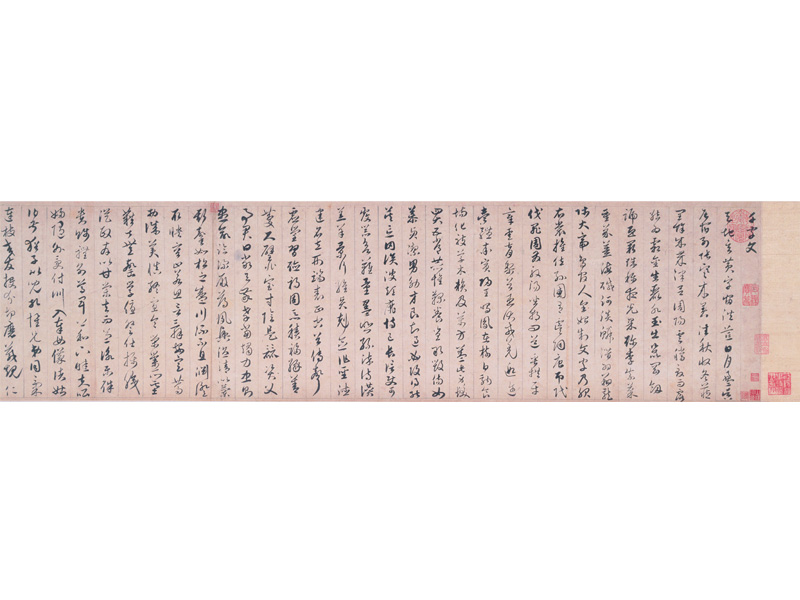 千字文
天地玄黃宇宙洪荒日月盈昃
辰宿列張寒來暑往秋收冬藏
閏餘成歲律呂調陽雲騰致雨露
結為霜金生麗水玉出崑岡劍
號巨闕珠稱夜光菓珍李柰菜
重芥薑海鹹河淡鱗潛羽翔龍
師火帝鳥官人皇始制文字乃服
衣裳推位遜國有虞陶唐弔民
伐罪周發殷湯坐朝問道垂拱平
章愛育黎首臣伏戎羌遐邇
壹體率賓歸王鳴鳳在樹白駒食
場化被草木賴及萬方蓋此身髮
四大五常恭惟鞠養豈敢毀傷女
慕貞潔男效才良知過必改得能
莫忘罔談彼短靡恃己長信使可
覆器欲難量墨悲絲染詩讚
羔羊景行維賢剋念作聖德
建名立形端表正空谷傳聲
虛堂習聽禍因惡積福緣善
慶尺璧非寶寸陰是競資父
事君曰嚴與敬孝當竭力忠則
盡命臨深履薄夙興溫凊似蘭
斯馨如松之盛川流不息淵澄
取映容止若思言辭安定篤
初誠美慎終宜令榮業所基
籍甚無竟學優登仕攝職
從政存以甘棠去而益詠樂殊
貴賤禮別尊卑上和下睦夫唱
婦隨外受傅訓入奉母儀諸姑
伯叔猶子比兒孔懷兄弟同氣
連枝交友投分切磨箴規仁